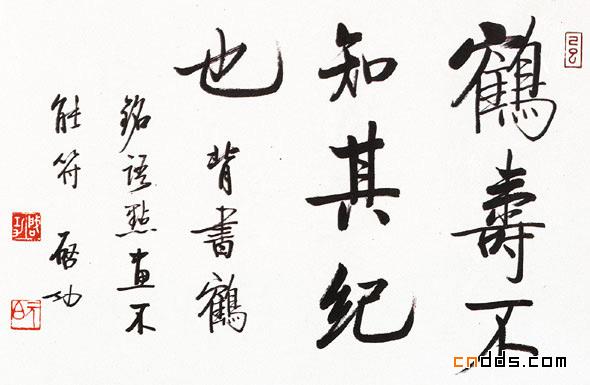 鶴壽不
知其紀
也 背書鶴
銘語點畫不
能符 啓功
cndds.com